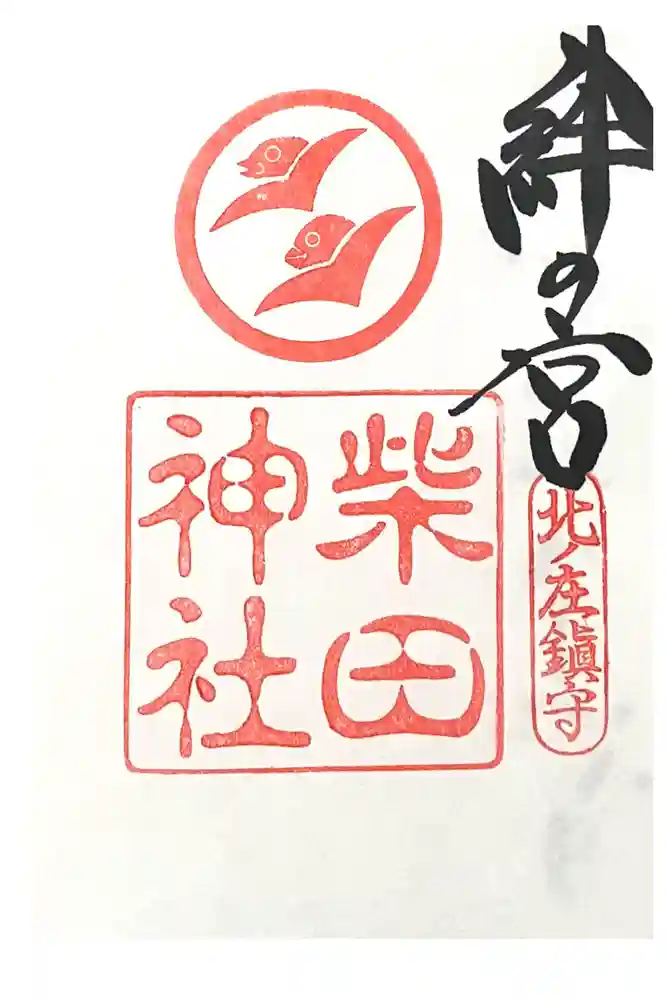 絆の宮
北ノ庄鎮守
柴田
神社